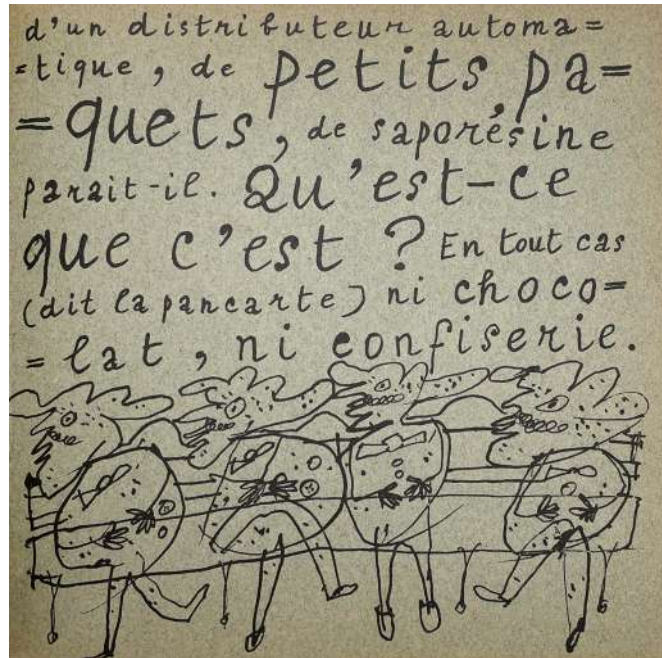 d'un distributeur automa=
=tique, de petits pa=
=quets, de saporésine
parait-il. Qu'est-ce
que c'est ? En tout cas
(dit la pancarte) ni choco=
=lat, ni confiserie.